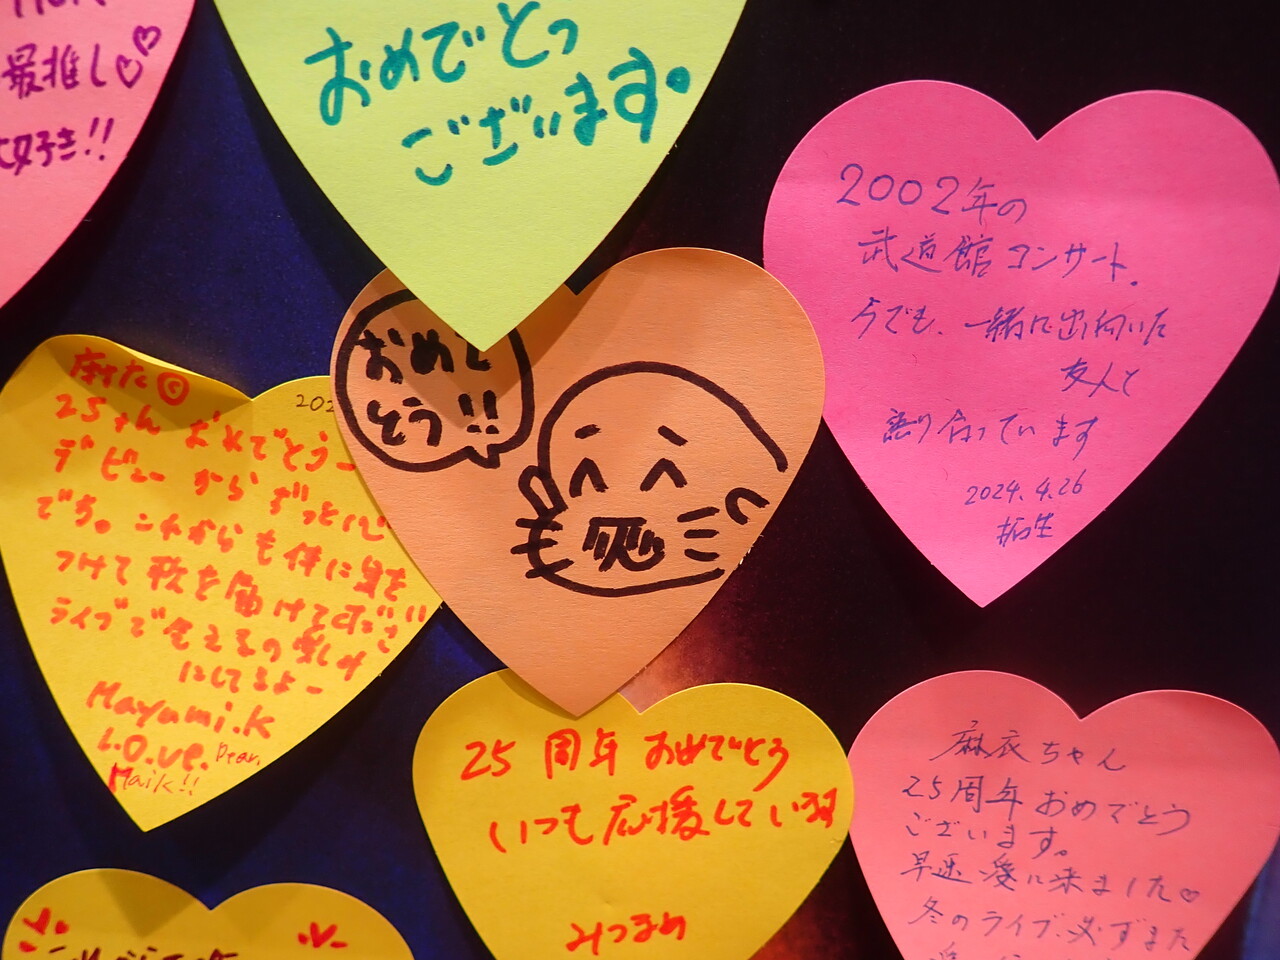 最推し♡♡
大好き!!
おめでとう
ございます。
2002年の
武道館コンサート。
今でも、一緒に出向いた
友人と
語り合っています
2024.4.26
おめで
とう!!
202
25さん おめでとうー
デビューからずっとにじ
でち。これからも体に気を
つけて歌を届けてください
ライブで会えるの楽しみ
にしてるよー
Mayumi.K
L.O.ve. Dear.
Maik!!
25周年 おめでとう
いつも応援しています
みつまめ
麻衣ちゃん
25周年おめでとう
ございます。
早速 愛に来ました♡
冬のライブ、必ずまた